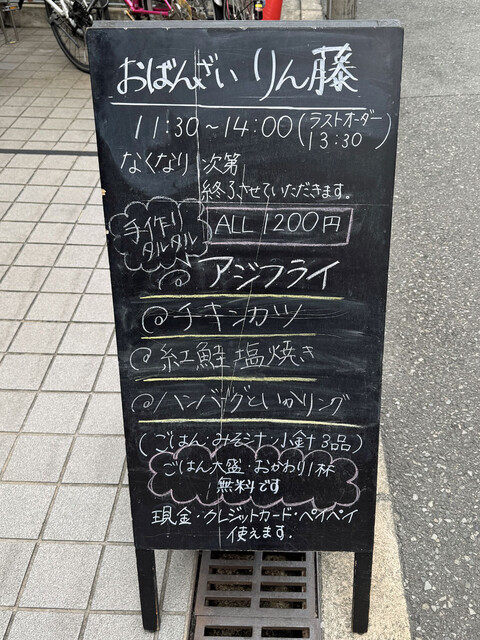 おばんざい りん藤
11:30~14:00 (ラストオーダー
13:30)
なくなり次第
終了させていただきます。
手作り
タルタル
ALL 1200円
@ アジフライ
@ チキンカツ
@ 紅鮭 塩焼き
@ ハンバーグといかリング
(ごはん・みそシナ・小針3品)
ごはん大盛・おかわり1杯
無料です
現金・クレジットカード・ペイペイ
使えます.